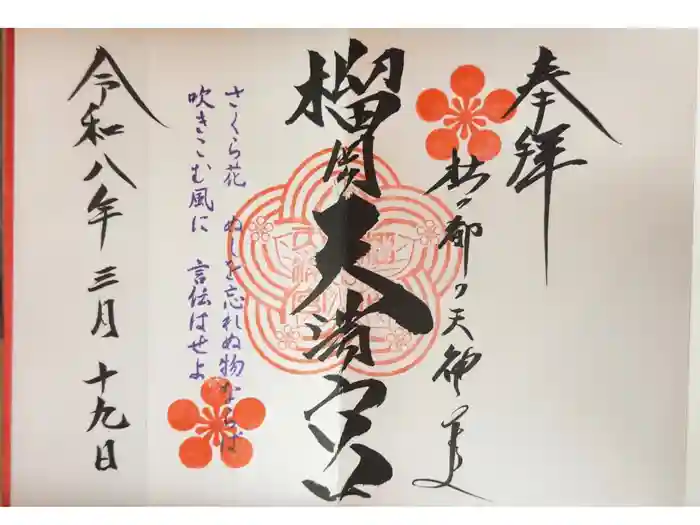 奉拝
杜の都の天神さま
榴岡天満宮
さくら花　ぬしを忘れぬ物ならば
吹きこむ風に　言伝はせよ
令和八年三月十九日